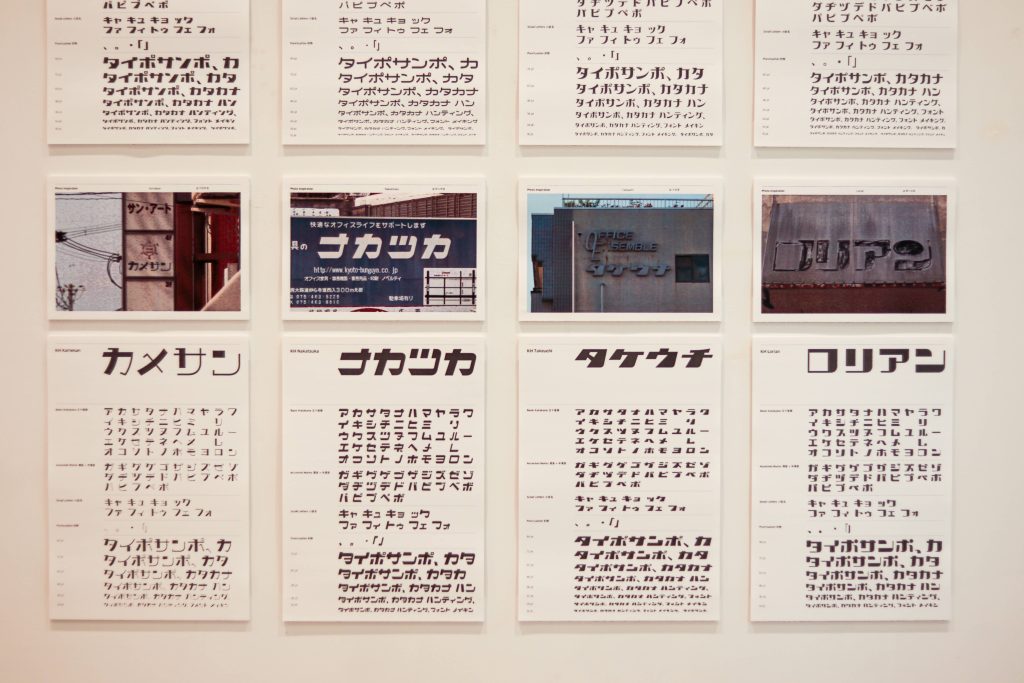 パピプペポ
Small Letters
キャ キュ キョ ック
ファ フィ トゥ フェ フォ
Punctuation
、。・「」
タイポサンポ、カ
タイポサンポ、カタ
タイポサンポ、カタカナ
タイポサンポ、カタカナ ハン
タイポサンポ、カタカナ ハンティング、
タイポサンポ、カタカナ ハンティング、フォント メイキン
キャ キュ キョ ック
ファ フィ トゥ フェ フォ
、。・「」
タイポサンポ、カ
タイポサンポ、カタ
タイポサンポ、カタカナ
タイポサンポ、カタカナ ハン
タイポサンポ、カタカナ ハンティング、
ダヂヅデドバビブベボ
パピプペポ
キャ キュ キョ ック
ファ フィ トゥ フェ フォ
、。・「」
タイポサンポ、カタ
タイポサンポ、カタカナ
タイポサンポ、カタカナ ハン
タイポサンポ、カタカナ ハンティング、
パピプペポ
キャ キュ キョ ック
ファ フィ トゥ フェ フォ
、。・「」
タイポサンポ、カタ
タイポサンポ、カタカナ
タイポサンポ、カタカナ ハン
タイポサンポ、カタカナ ハンティング、
Photo Inspiration
サン・アート
カメサン
Photo Inspiration
快適なオフィスライフをサポートします
具の ナカツカ
http://www.kyoto-bunguya.co.jp
駐車場有り
Photo Inspiration
OFFICE
ENSEMBLE
タケウチ
Photo Inspiration
ロリアン
KH Kamesan
カメサン
アカサタナハマヤラワ
イキシチニヒミ リ
ウクスツヌフムユルー
エケセテネヘメ レ
オコソトノホモヨロン
ガギグゲゴザジズゼゾ
ダヂヅデドバビブベボ
パピプペポ
キャ キュ キョ ック
ファ フィ トゥ フェ フォ
、。・「」
タイポサンポ、カ
タイポサンポ、カタ
タイポサンポ、カタカナ
タイポサンポ、カタカナ ハン
タイポサンポ、カタカナ ハンティング、
KH Nakatsuka
ナカツカ
アカサタナハマヤラワ
イキシチニヒミ リ
ウクスツヌフムユルー
エケセテネヘメ レ
オコソトノホモヨロン
ガギグゲゴザジズゼゾ
ダヂヅデドバビブベボ
パピプペポ
キャ キュ キョ ック
ファ フィ トゥ フェ フォ
、。・「」
タイポサンポ、カタ
タイポサンポ、カタカ
タイポサンポ、カタカナ ハン
タイポサンポ、カタカナ ハンティング、
タイポサンポ、カタカナ ハンティング、フォント メイキン
KH Takeuchi
タケウチ
アカサタナハマヤラワ
イキシチニヒミ リ
ウクスツヌフムユルー
エケセテネヘメ レ
オコソトノホモヨロン
ガギグゲゴザジズゼゾ
ダヂヅデドバビブベボ
パピプペポ
キャ キュ キョ ック
ファ フィ トゥ フェ フォ
、。・「」
タイポサンポ、カ
タイポサンポ、カタ
タイポサンポ、カタカナ
タイポサンポ、カタカナ ハン
タイポサンポ、カタカナ ハンティング、
KH Lorian
ロリアン
アカサタナハマヤラワ
イキシチニヒミ リ
ウクスツヌフムユルー
エケセテネヘメ レ
オコソトノホモヨロン
ガギグゲゴザジズゼゾ
ダヂヅデドバビブベボ
パピプペポ
キャ キュ キョ ック
ファ フィ トゥ フェ フォ
、。・「」
タイポサンポ、カ
タイポサンポ、カタ
タイポサンポ、カタカナ
タイポサンポ、カタカナ ハン
タイポサンポ、カタカナ ハンティング、